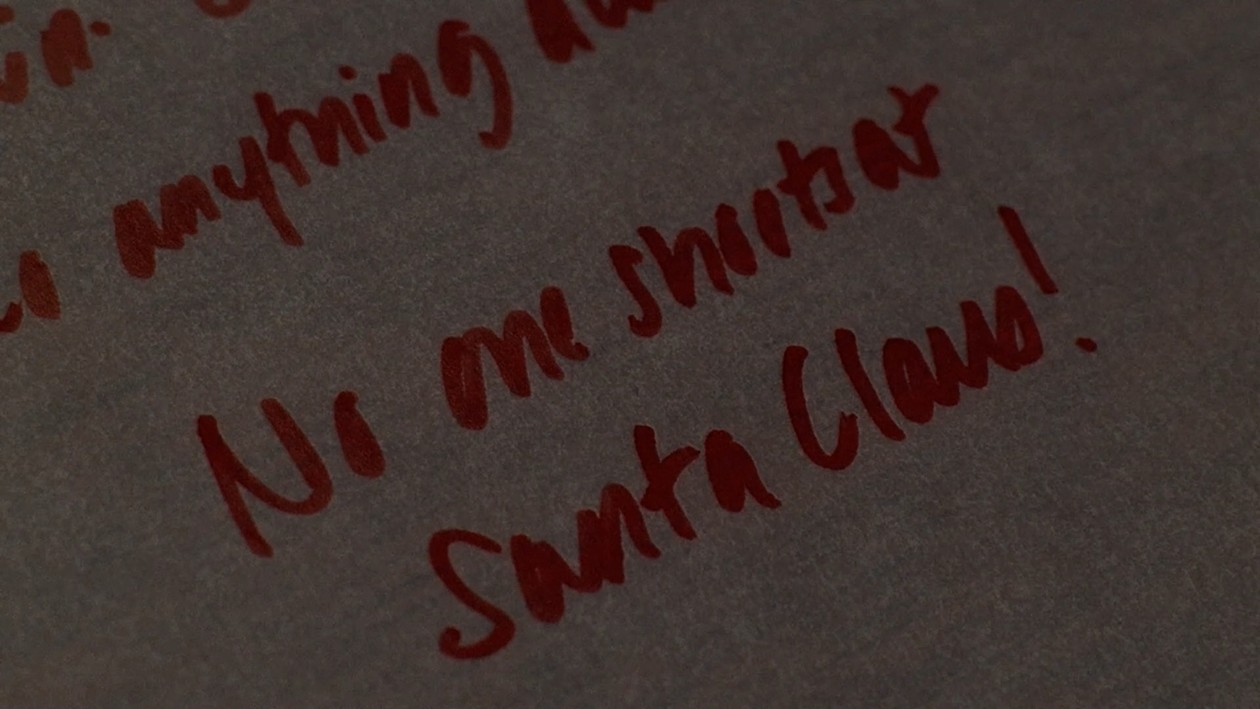 anything
No one shoots at
Santa Claus!